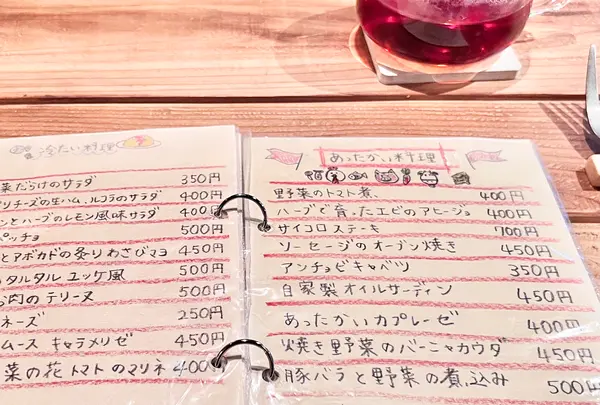 冷たい料理
菜だらけのサラダ 350円
リチーズの生ハム、ルコラのサラダ 400円
ンとハーブのレモン風味サラダ 400円
パッチョ 500円
とアボカドの炙りわさびマヨ 450円
タルタル ユッケ風 500円
お肉のテリーヌ 500円
ネーズ 250円
ムース キャラメリゼ 450円
菜の花トマトのマリネ 400
あったかい料理
野菜のトマト煮 400円
ハーブで育ったエビのアヒージョ 400円
サイコロステーキ 700円
ソーセージのオーブン焼き 450円
アンチョビキャベツ 350円
自家製オイルサーディン 450円
あったかいカプレーゼ 400円
焼き野菜のバーニャカウダ 450円
豚バラと野菜の煮込み 500円